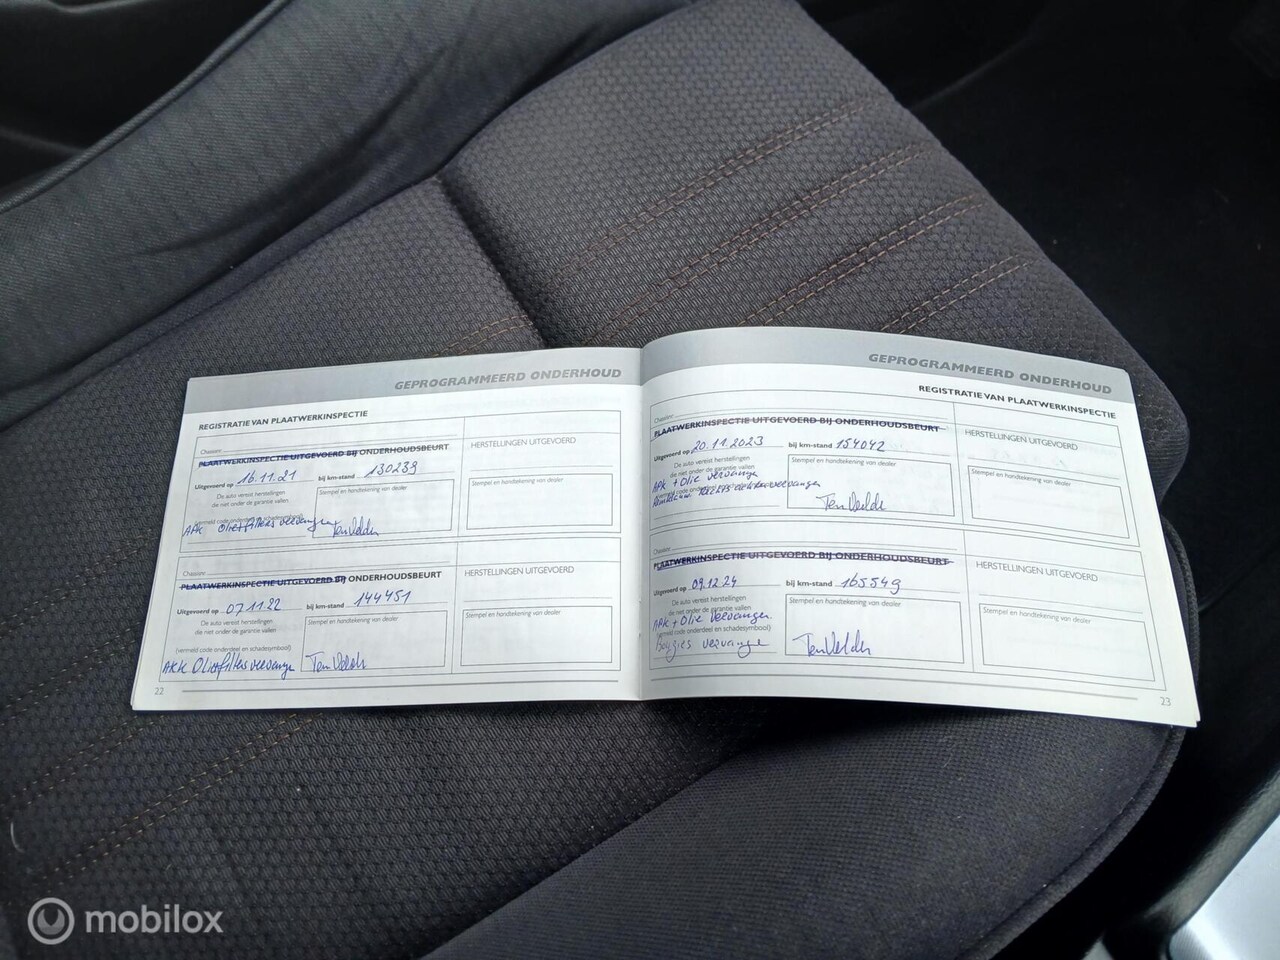 GEPROGRAMMEERD ONDERHOUD
REGISTRATIE VAN PLAATWERKINSPECTIE
Chassisnr.
PLAATWERKINSPECTIE UITGEVOERD BIJ ONDERHOUDSBEURT
Uitgevoerd op 16.11.21 bij km-stand 130239
De auto vereist herstellingen
die niet onder de garantie vallen
(vermeld code onderdeel en schadesymbool)
APK Olie+filters vervangen
Stempel en handtekening van dealer
HERSTELLINGEN UITGEVOERD
Stempel en handtekening van dealer
Chassisnr.
PLAATWERKINSPECTIE UITGEVOERD BIJ ONDERHOUDSBEURT
Uitgevoerd op 07.11.22 bij km-stand 144451
De auto vereist herstellingen
die niet onder de garantie vallen
(vermeld code onderdeel en schadesymbool)
APK Olie+filters vervange
Stempel en handtekening van dealer
HERSTELLINGEN UITGEVOERD
Stempel en handtekening van dealer
22
GEPROGRAMMEERD ONDERHOUD
REGISTRATIE VAN PLAATWERKINSPECTIE
Chassisnr.
PLAATWERKINSPECTIE UITGEVOERD BIJ ONDERHOUDSBEURT
Uitgevoerd op 20.11.2023 bij km-stand 154042
De auto vereist herstellingen
die niet onder de garantie vallen
APK + Olie vervange
Rechts vervangen
Stempel en handtekening van dealer
HERSTELLINGEN UITGEVOERD
Stempel en handtekening van dealer
Chassisnr.
PLAATWERKINSPECTIE UITGEVOERD BIJ ONDERHOUDSBEURT
Uitgevoerd op 09.12.24 bij km-stand 165549
De auto vereist herstellingen
die niet onder de garantie vallen
APK + Olie vervangen
(vermeld code onderdeel en schadesymbool)
Bougies vervange
Stempel en handtekening van dealer
HERSTELLINGEN UITGEVOERD
Stempel en handtekening van dealer
23
mobilox